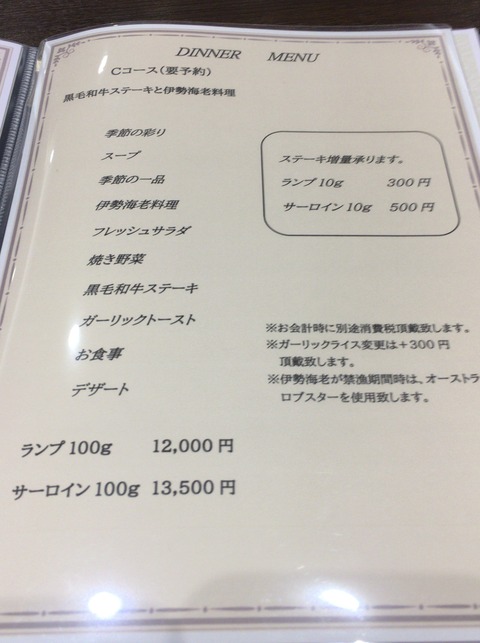 DINNER MENU
Cコース（要予約）
黒毛和牛ステーキと伊勢海老料理
季節の彩り
スープ
季節の一品
伊勢海老料理
フレッシュサラダ
焼き野菜
黒毛和牛ステーキ
ガーリックトースト
お食事
デザート
ランプ100g 12,000円
サーロイン100g 13,500円
ステーキ増量承ります。
ランプ10g 300円
サーロイン10g 500円
※お会計時に別途消費税頂戴致します。
※ガーリックライス変更は＋300円
頂戴致します。
※伊勢海老が禁漁期間時は、オーストラ
ロブスターを使用致します。